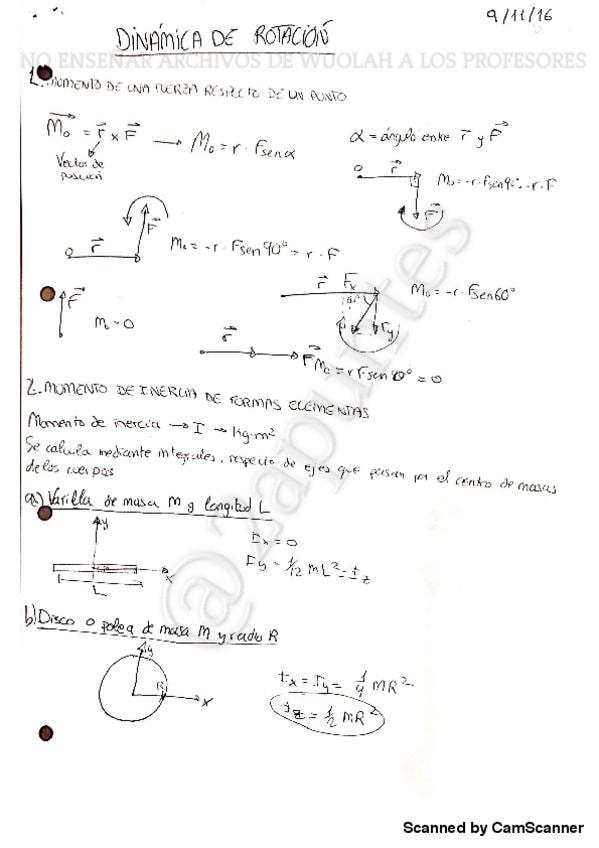 9/11/16
DINÁMICA DE ROTACIÓN
NO ENSEÑAR ARCHIVOS DE WUOLAH A LOS PROFESORES
1. MOMENTO DE UNA FUERZA RESPECTO DE UN PUNTO
M₀ = r x F → M₀ = r · F sen α
α = ángulo entre r y F
Vector de
posición
r
M₀ = -r · F sen 90° = -r · F
F
F
r
M₀ = -r · F sen 90° = r · F
F
M₀ = 0
r Fx
60°
Fy
M₀ = -r · F sen 60°
r
F
M₀ = r F sen 0° = 0
2. MOMENTO DE INERCIA DE FORMAS ELEMENTAS
Momento de inercia → I → kg·m²
Se calcula mediante integrales, respecto de ejes que pasan por el centro de masas
de los cuerpos
a) Varilla de masa M y longitud L
y
x
L
Ix = 0
Iy = 1/12 ML² = Iz
b) Disco o polea de masa M y radio R
y
R
x
Ix = Iy = 1/4 MR²
Iz = 1/2 MR²
@zapuntes
Scanned by CamScanner